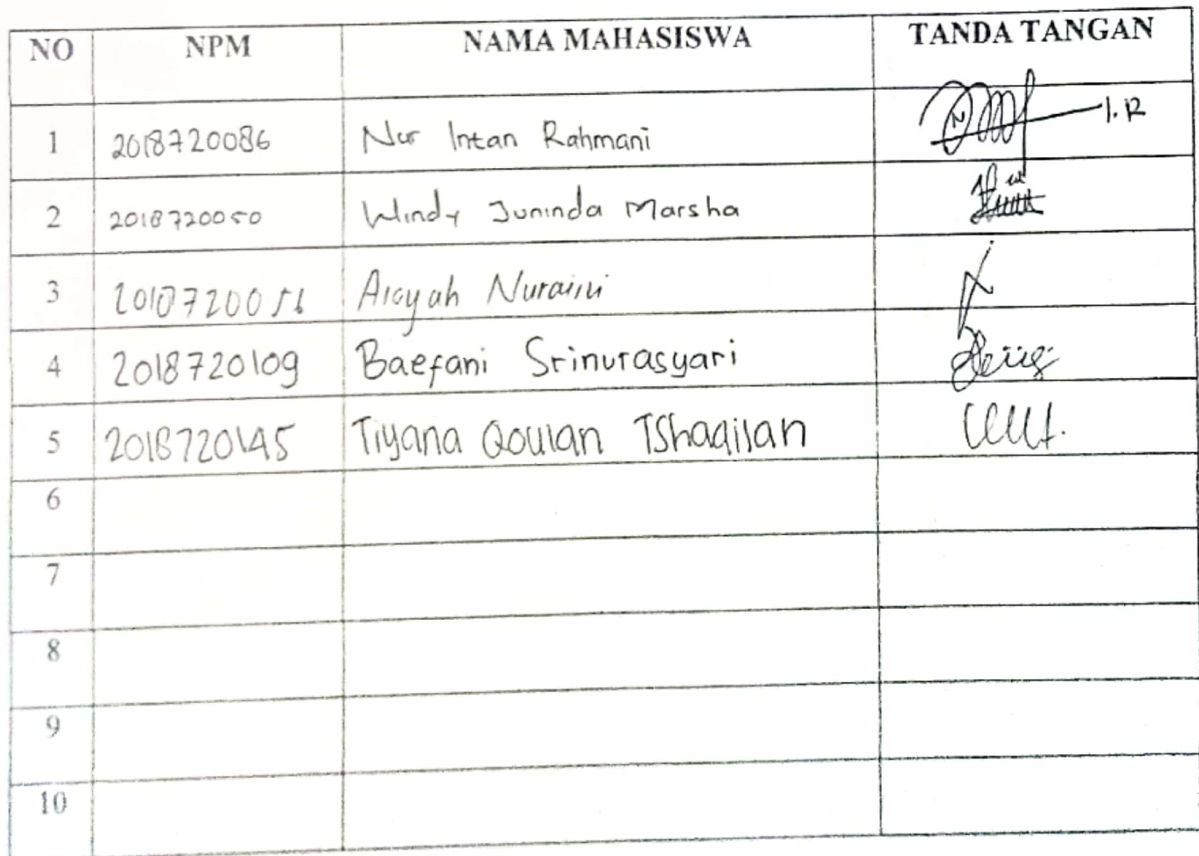 NO NPM NAMA MAHASISWA TANDA TANGAN
1 2018720086 Nur Intan Rahmani I.R
2 2018720050 Windy Juninda Marsha
3 2018720056 Aisyah Nuraini
4 2018720109 Baefani Srinurasyari
5 2018720145 Tiyana Qoulan TShaqilan
6
7
8
9
10